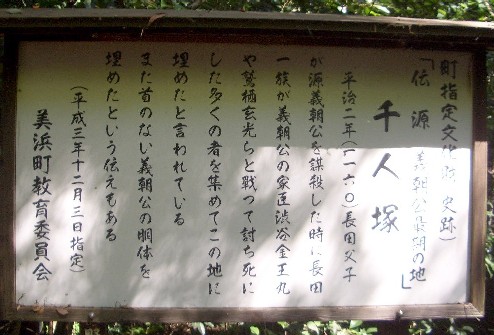 町指定文化財(史跡)
「伝 源 義朝公最期の地」
千人塚
平治二年(一一六〇)長田父子
が源義朝公を謀殺した時に長田
一族が義朝公の家臣渋谷金王丸
や鷲栖玄光らと戦つて討ち死に
した多くの者を集めてこの地に
埋めたと言われている
また首のない義朝公の胴体を
埋めたという伝えもある
(平成三年十二月三日指定)
美浜町教育委員会